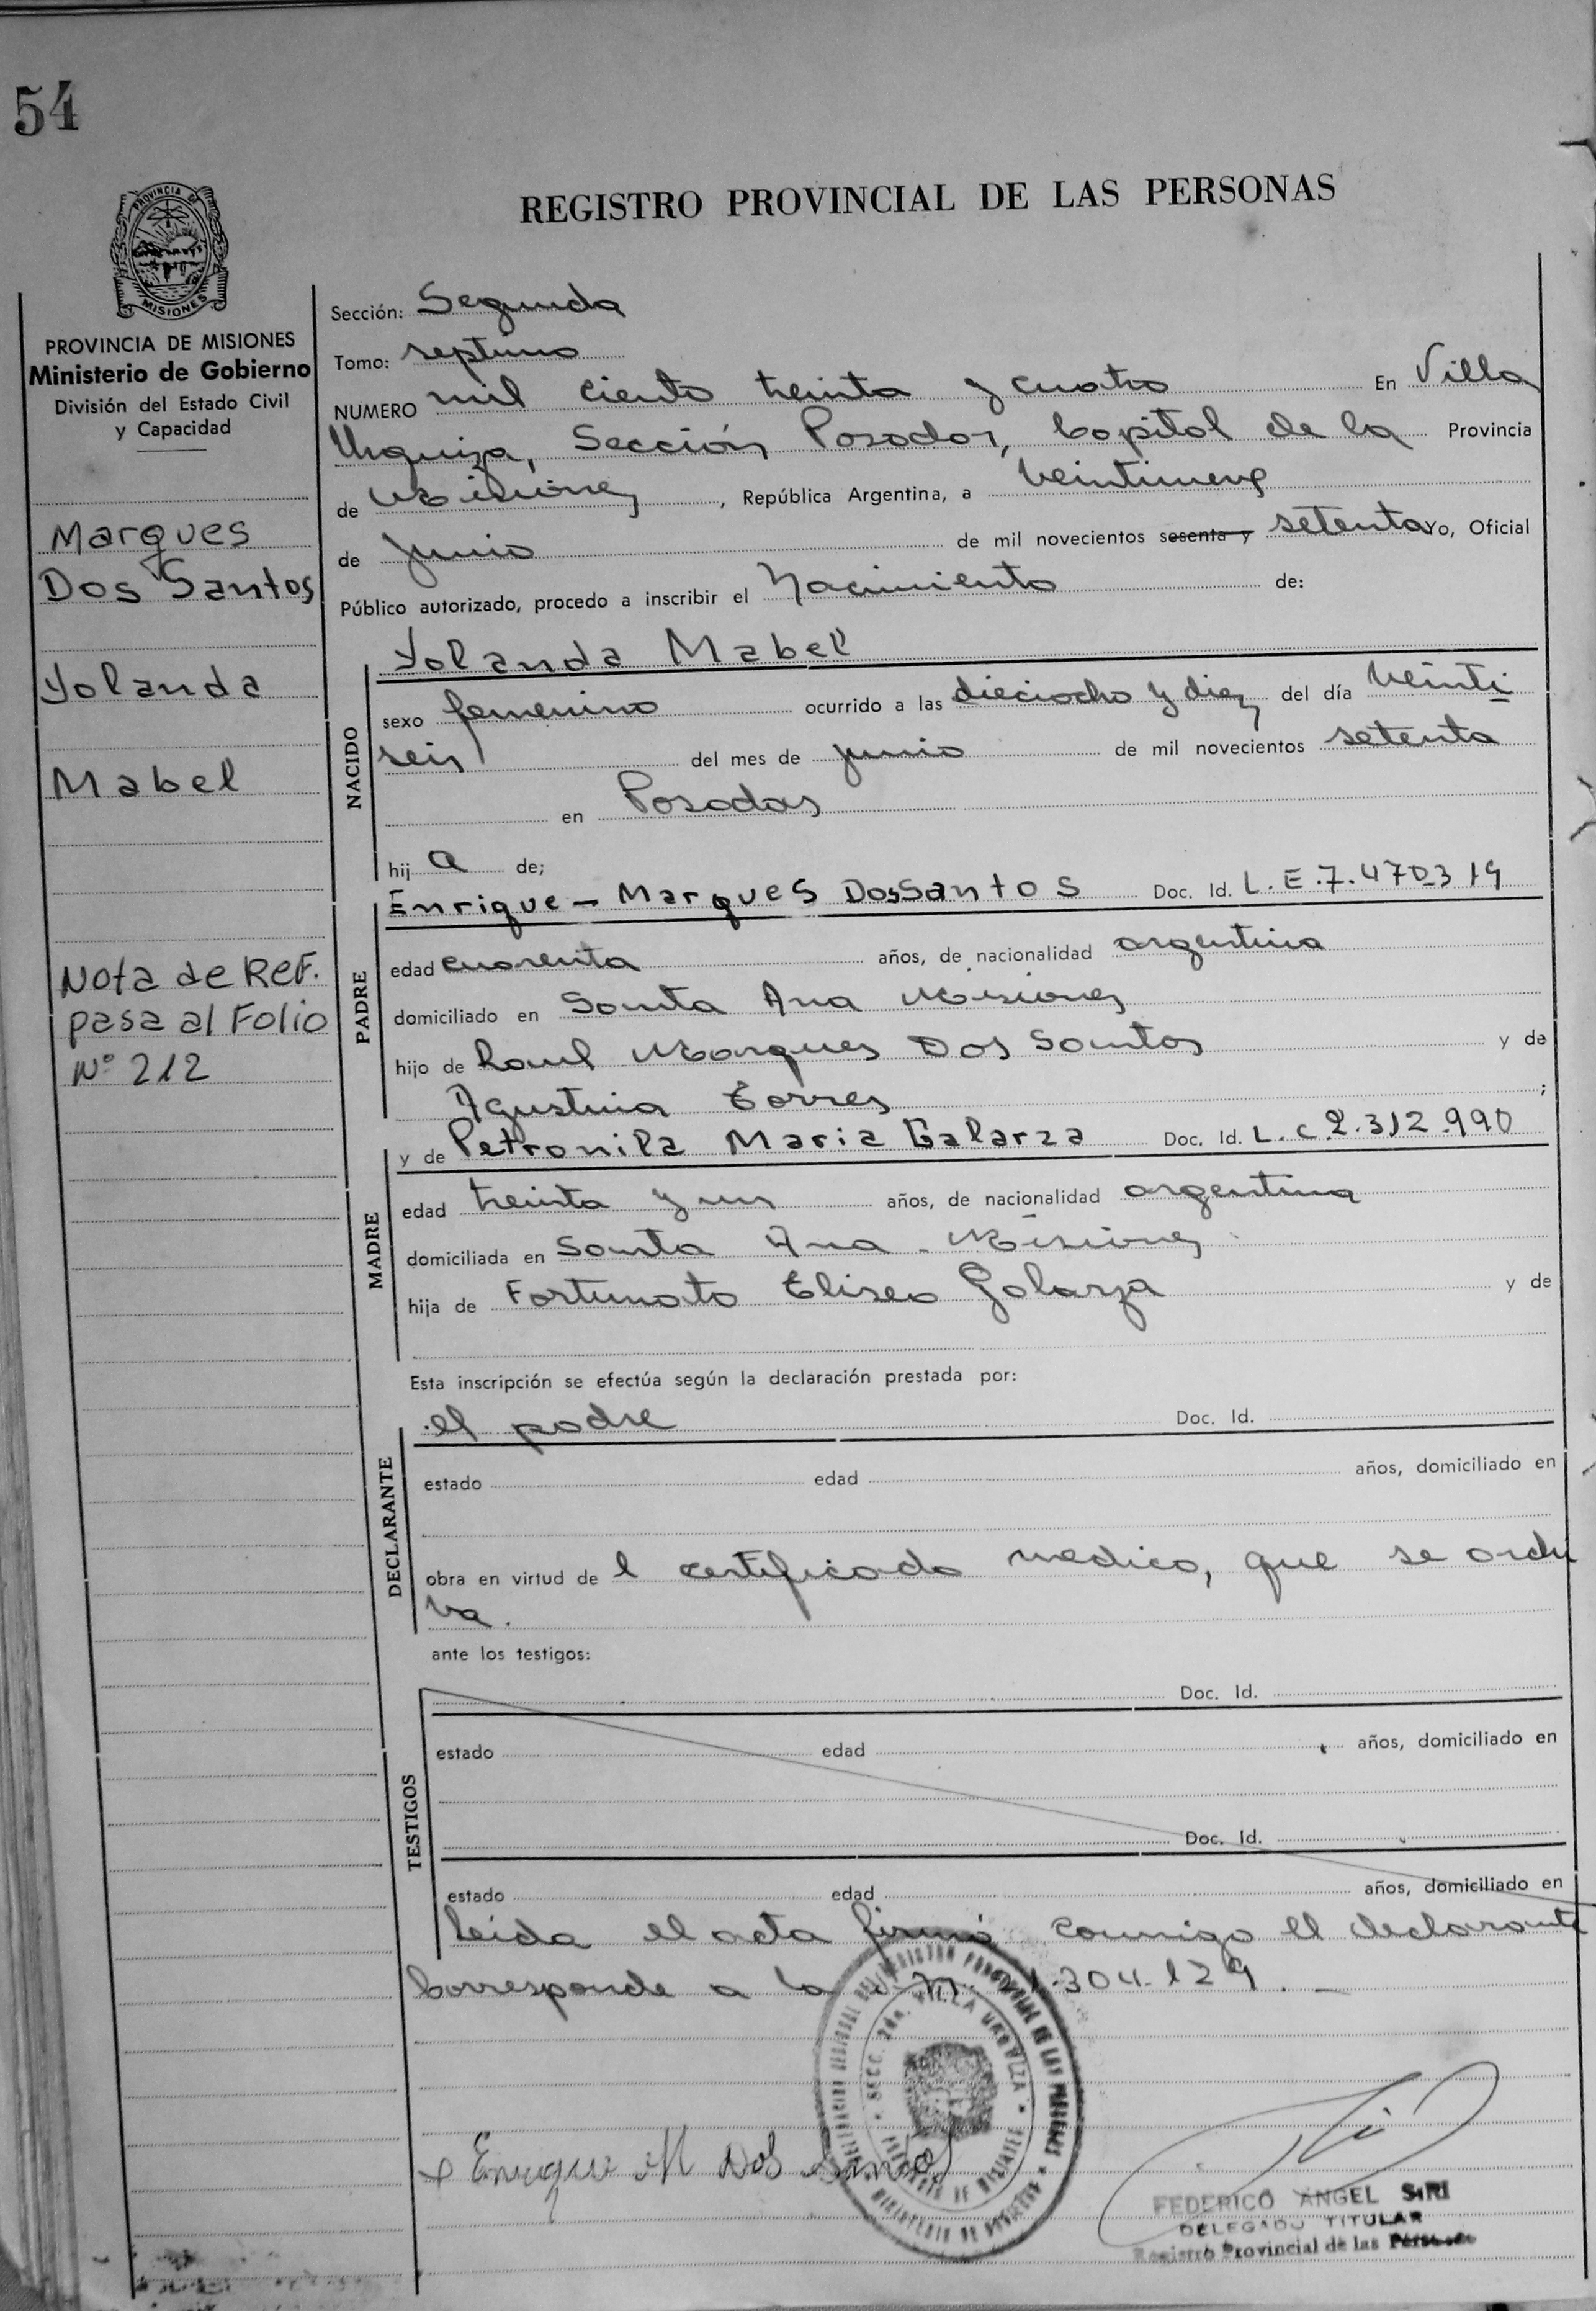 54
REGISTRO PROVINCIAL DE LAS PERSONAS
PROVINCIA DE
MISIONES
PROVINCIA DE MISIONES
Ministerio de Gobierno
División del Estado Civil
y Capacidad
Marques
Dos Santos
Yolanda
Mabel
Nota de Ref.
pasa al Folio
Nº 212
Sección: Segunda
Tomo: septimo
NUMERO mil ciento treinta y cuatro En Villa
Urquiza, Sección Posadas, Capital de la Provincia
de Misiones, República Argentina, a veintinueve
de junio de mil novecientos sesenta y setenta Yo, Oficial
Público autorizado, procedo a inscribir el Nacimiento de:
NACIDO
Yolanda Mabel
sexo femenino ocurrido a las dieciocho y diez del día veinti
seis del mes de junio de mil novecientos setenta
en Posadas
hij a de;
PADRE
Enrique - Marques Dos Santos Doc. Id. L.E.7.470319
edad cuarenta años, de nacionalidad argentina
domiciliado en Santa Ana Misiones
hijo de Raul Marques Dos Santos y de
Agustina Torres ;
MADRE
y de Petronila Maria Galarza Doc. Id. L.C.2.312.990
edad treinta y un años, de nacionalidad argentina
domiciliada en Santa Ana - Misiones
hija de Fortunato Eliseo Galarza y de
Esta inscripción se efectúa según la declaración prestada por:
DECLARANTE
el padre Doc. Id.
estado edad años, domiciliado en
obra en virtud de l certificado medico, que se archi
va.
ante los testigos:
TESTIGOS
Doc. Id.
estado edad años, domiciliado en
Doc. Id.
estado edad años, domiciliado en
Leida el acta firmó conmigo el declarante
Corresponde a la 304.129. -
SECC. 2da. VILLA URQUIZA
Enrique M Dos Santos
FEDERICO ANGEL SIRI
DELEGADO TITULAR
Registro Provincial de las Personas